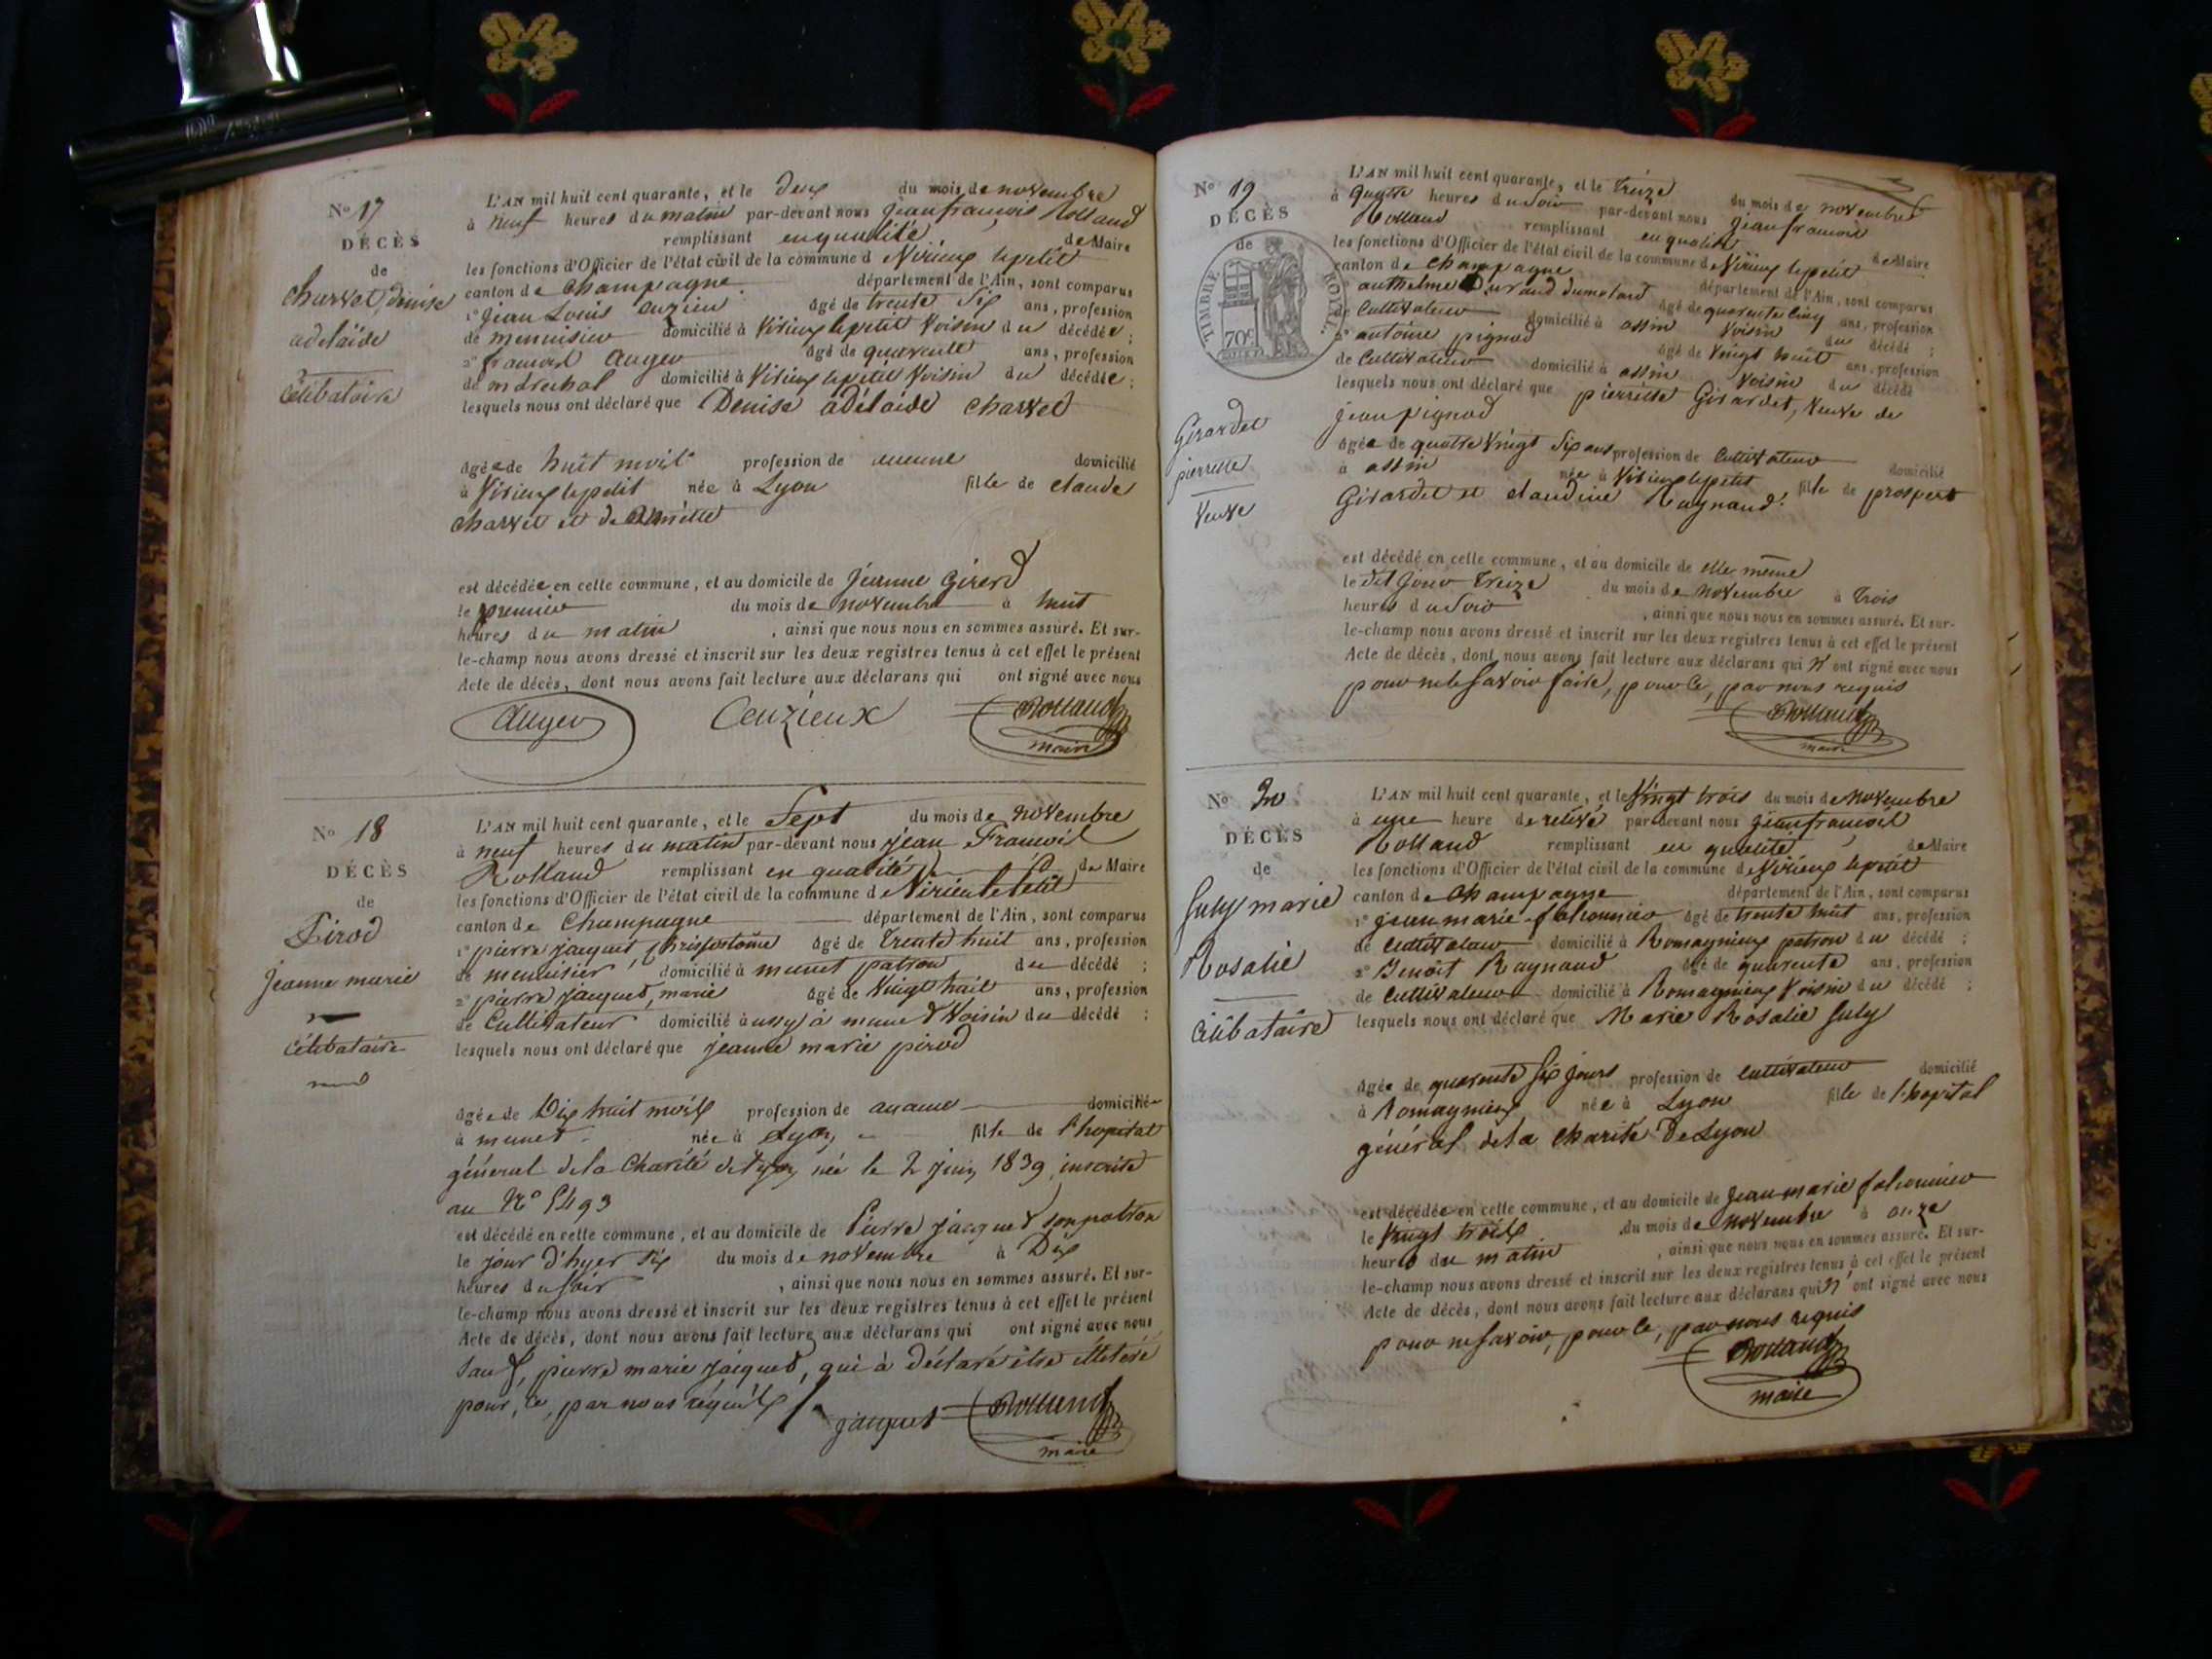 N° 17
DÉCÈS
de
Charvet Denise
adelaïde
célibataire
L'AN mil huit cent quarante, et le deux du mois de novembre
à neuf heures du matin par-devant nous jean françois Rolland
remplissant en qualité de Maire
les fonctions d'Officier de l'état civil de la commune d Virieux lepetit
canton de Champagne département de l'Ain, sont comparus
1° Jean Louis auzieu âgé de trente six ans, profession
de menuisier domicilié à Virieux lepetit voisin du décédée ;
2° françois auger âgé de quarante ans, profession
de maréchal domicilié à Virieux lepetit voisin du décédée ;
lesquels nous ont déclaré que Denise adélaide charvet
âgée de huit mois profession de aucune domicilié
à Virieux lepetit née à Lyon fille de claude
charvet et de
est décédée en cette commune, et au domicile de jeanne Girerd
le premier du mois de novembre à huit
heures du matin , ainsi que nous nous en sommes assuré. Et sur-
le-champ nous avons dressé et inscrit sur les deux registres tenus à cet effet le présent
Acte de décès, dont nous avons fait lecture aux déclarans qui ont signé avec nous
auger Cuzieux Rolland
maire
N° 18
DÉCÈS
de
Pirod
jeanne marie
célibataire
L'AN mil huit cent quarante, et le Sept du mois de novembre
à neuf heures du matin par-devant nous jean François
Rolland remplissant en qualité de Maire
les fonctions d'Officier de l'état civil de la commune d Virieu le Petit
canton de Champagne département de l'Ain, sont comparus
1° pierre jacquet, chrisostôme âgé de trente huit ans, profession
de menuisier domicilié à munet patron du décédé ;
2° pierre jacquet, marie âgé de vingt huit ans, profession
de Cultivateur domicilié à munet voisin du décédé ;
lesquels nous ont déclaré que jeanne marie pirod
âgée de Dix huit mois profession de aucune domicilié
à munet née à Lyon fille de l'hopital
général de la Charité de Lyon, née le 2 juin 1839, inscrite
au N° 5493
est décédé en cette commune, et au domicile de Pierre jacquet son patron
le jour d'hyer six du mois de novembre à Dix
heures du soir , ainsi que nous nous en sommes assuré. Et sur-
le-champ nous avons dressé et inscrit sur les deux registres tenus à cet effet le présent
Acte de décès, dont nous avons fait lecture aux déclarans qui ont signé avec nous
sauf, pierre marie jacquet, qui à déclaré être illétéré
pour, ce, par nous réquis
jacquet Rolland
maire
N° 19
DÉCÈS
de
TIMBRE ROYAL
70c
Girardet
pierrette
veuve
L'AN mil huit cent quarante, et le treize du mois de novembre
à quatre heures du soir par-devant nous jean françois
Rolland remplissant en qualité de Maire
les fonctions d'Officier de l'état civil de la commune de Virieux lepetit
canton de Champagne département de l'Ain, sont comparus
1° anthelme Durand dumolard âgé de quarante cinq ans, profession
de Cultivateur domicilié à assin voisin du décédé ;
2° antoine pignod âgé de vingt huit ans, profession
de Cultivateur domicilié à assin voisin du décédé
lesquels nous ont déclaré que pierrette Girardet, veuve de
jean pignod
âgée de quatre vingt six ans profession de Cultivateur domicilié
à assin née à Virieux lepetit fille de prospert
Girardet et claudine Reynaud.
est décédé en cette commune, et au domicile de elle même
le dit jour treize du mois de novembre à trois
heures du soir , ainsi que nous nous en sommes assuré. Et sur-
le-champ nous avons dressé et inscrit sur les deux registres tenus à cet effet le présent
Acte de décès, dont nous avons fait lecture aux déclarans qui n'ont signé avec nous
pour ne le savoir faire, pour ce, par nous requis
Rolland
maire
N° 20
DÉCÈS
de
July marie
Rosalie
célibataire
L'AN mil huit cent quarante, et le vingt trois du mois de novembre
à une heure de relevé par-devant nous jean françois
Rolland remplissant en qualité de Maire
les fonctions d'Officier de l'état civil de la commune de Virieux lepetit
canton de Champagne département de l'Ain, sont comparus
1° jean marie falconnier âgé de trente huit ans, profession
de cultivateur domicilié à Romagnieux patron du décédé ;
2° Benoit Raynaud âgé de quarente ans, profession
de Cultivateur domicilié à Romagnieux voisin du décédé ;
lesquels nous ont déclaré que Marie Rosalie July
âgée de quarente six jours profession de cultivateur domicilié
à Romagnieux née à Lyon fille de l'hopital
général de la charité de Lyon
est décédée en cette commune, et au domicile de jean marie falconnier
le vingt trois du mois de novembre à onze
heures du matin , ainsi que nous nous en sommes assuré. Et sur-
le-champ nous avons dressé et inscrit sur les deux registres tenus à cet effet le présent
Acte de décès, dont nous avons fait lecture aux déclarans qui n'ont signé avec nous
pour ne savoir, pour ce, par nous requis
Rolland
maire